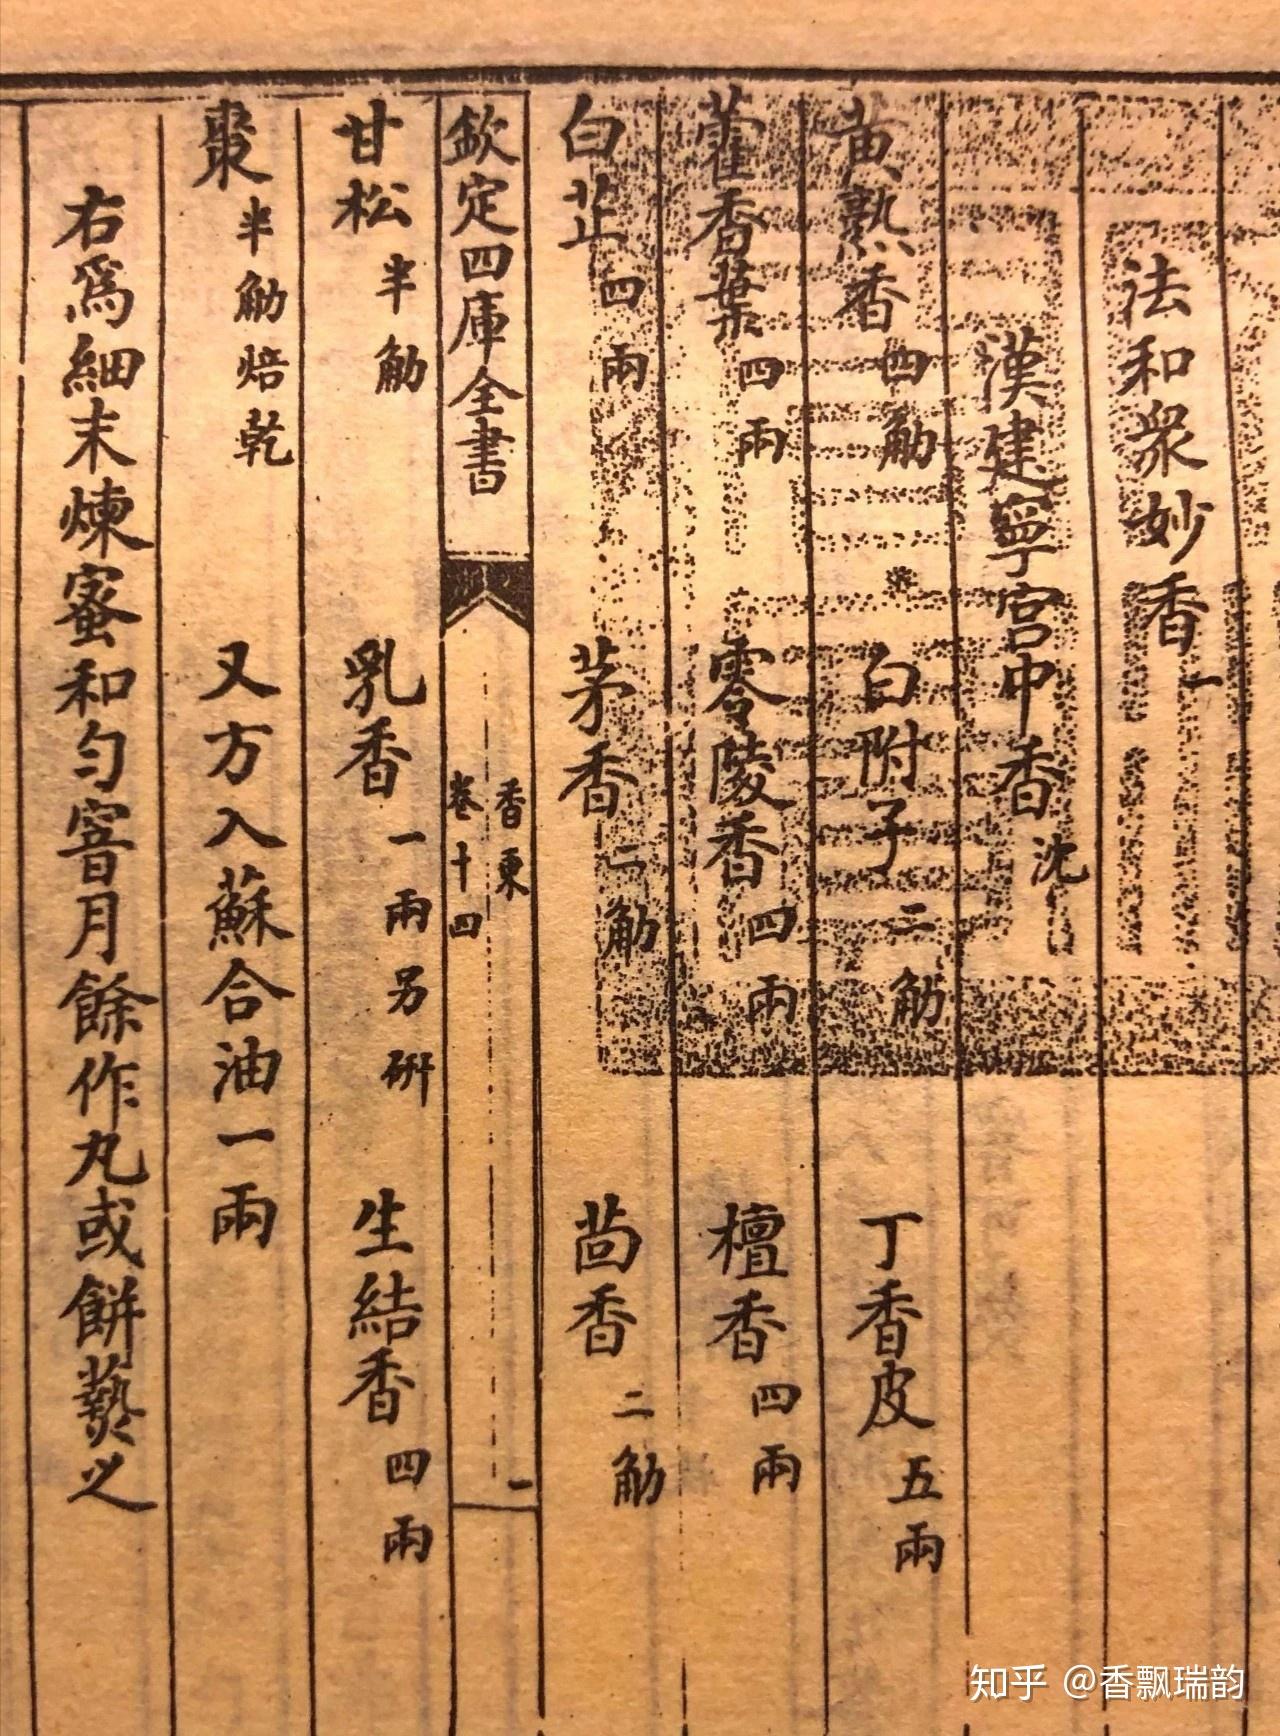 法和衆妙香一
漢建寧宮中香沈
黃熟香四觔 白附子二觔 丁香皮五兩
藿香葉四兩 零陵香四兩 檀香四兩
白芷四兩 茅香二觔 茴香二觔
欽定四庫全書 香乗 卷十四 一
甘松半觔 乳香一兩另研 生結香四兩
棗半觔焙乾 又方入蘇合油一兩
右爲細末煉蜜和勻窨月餘作丸或餅爇之
知乎 @香飘瑞韵